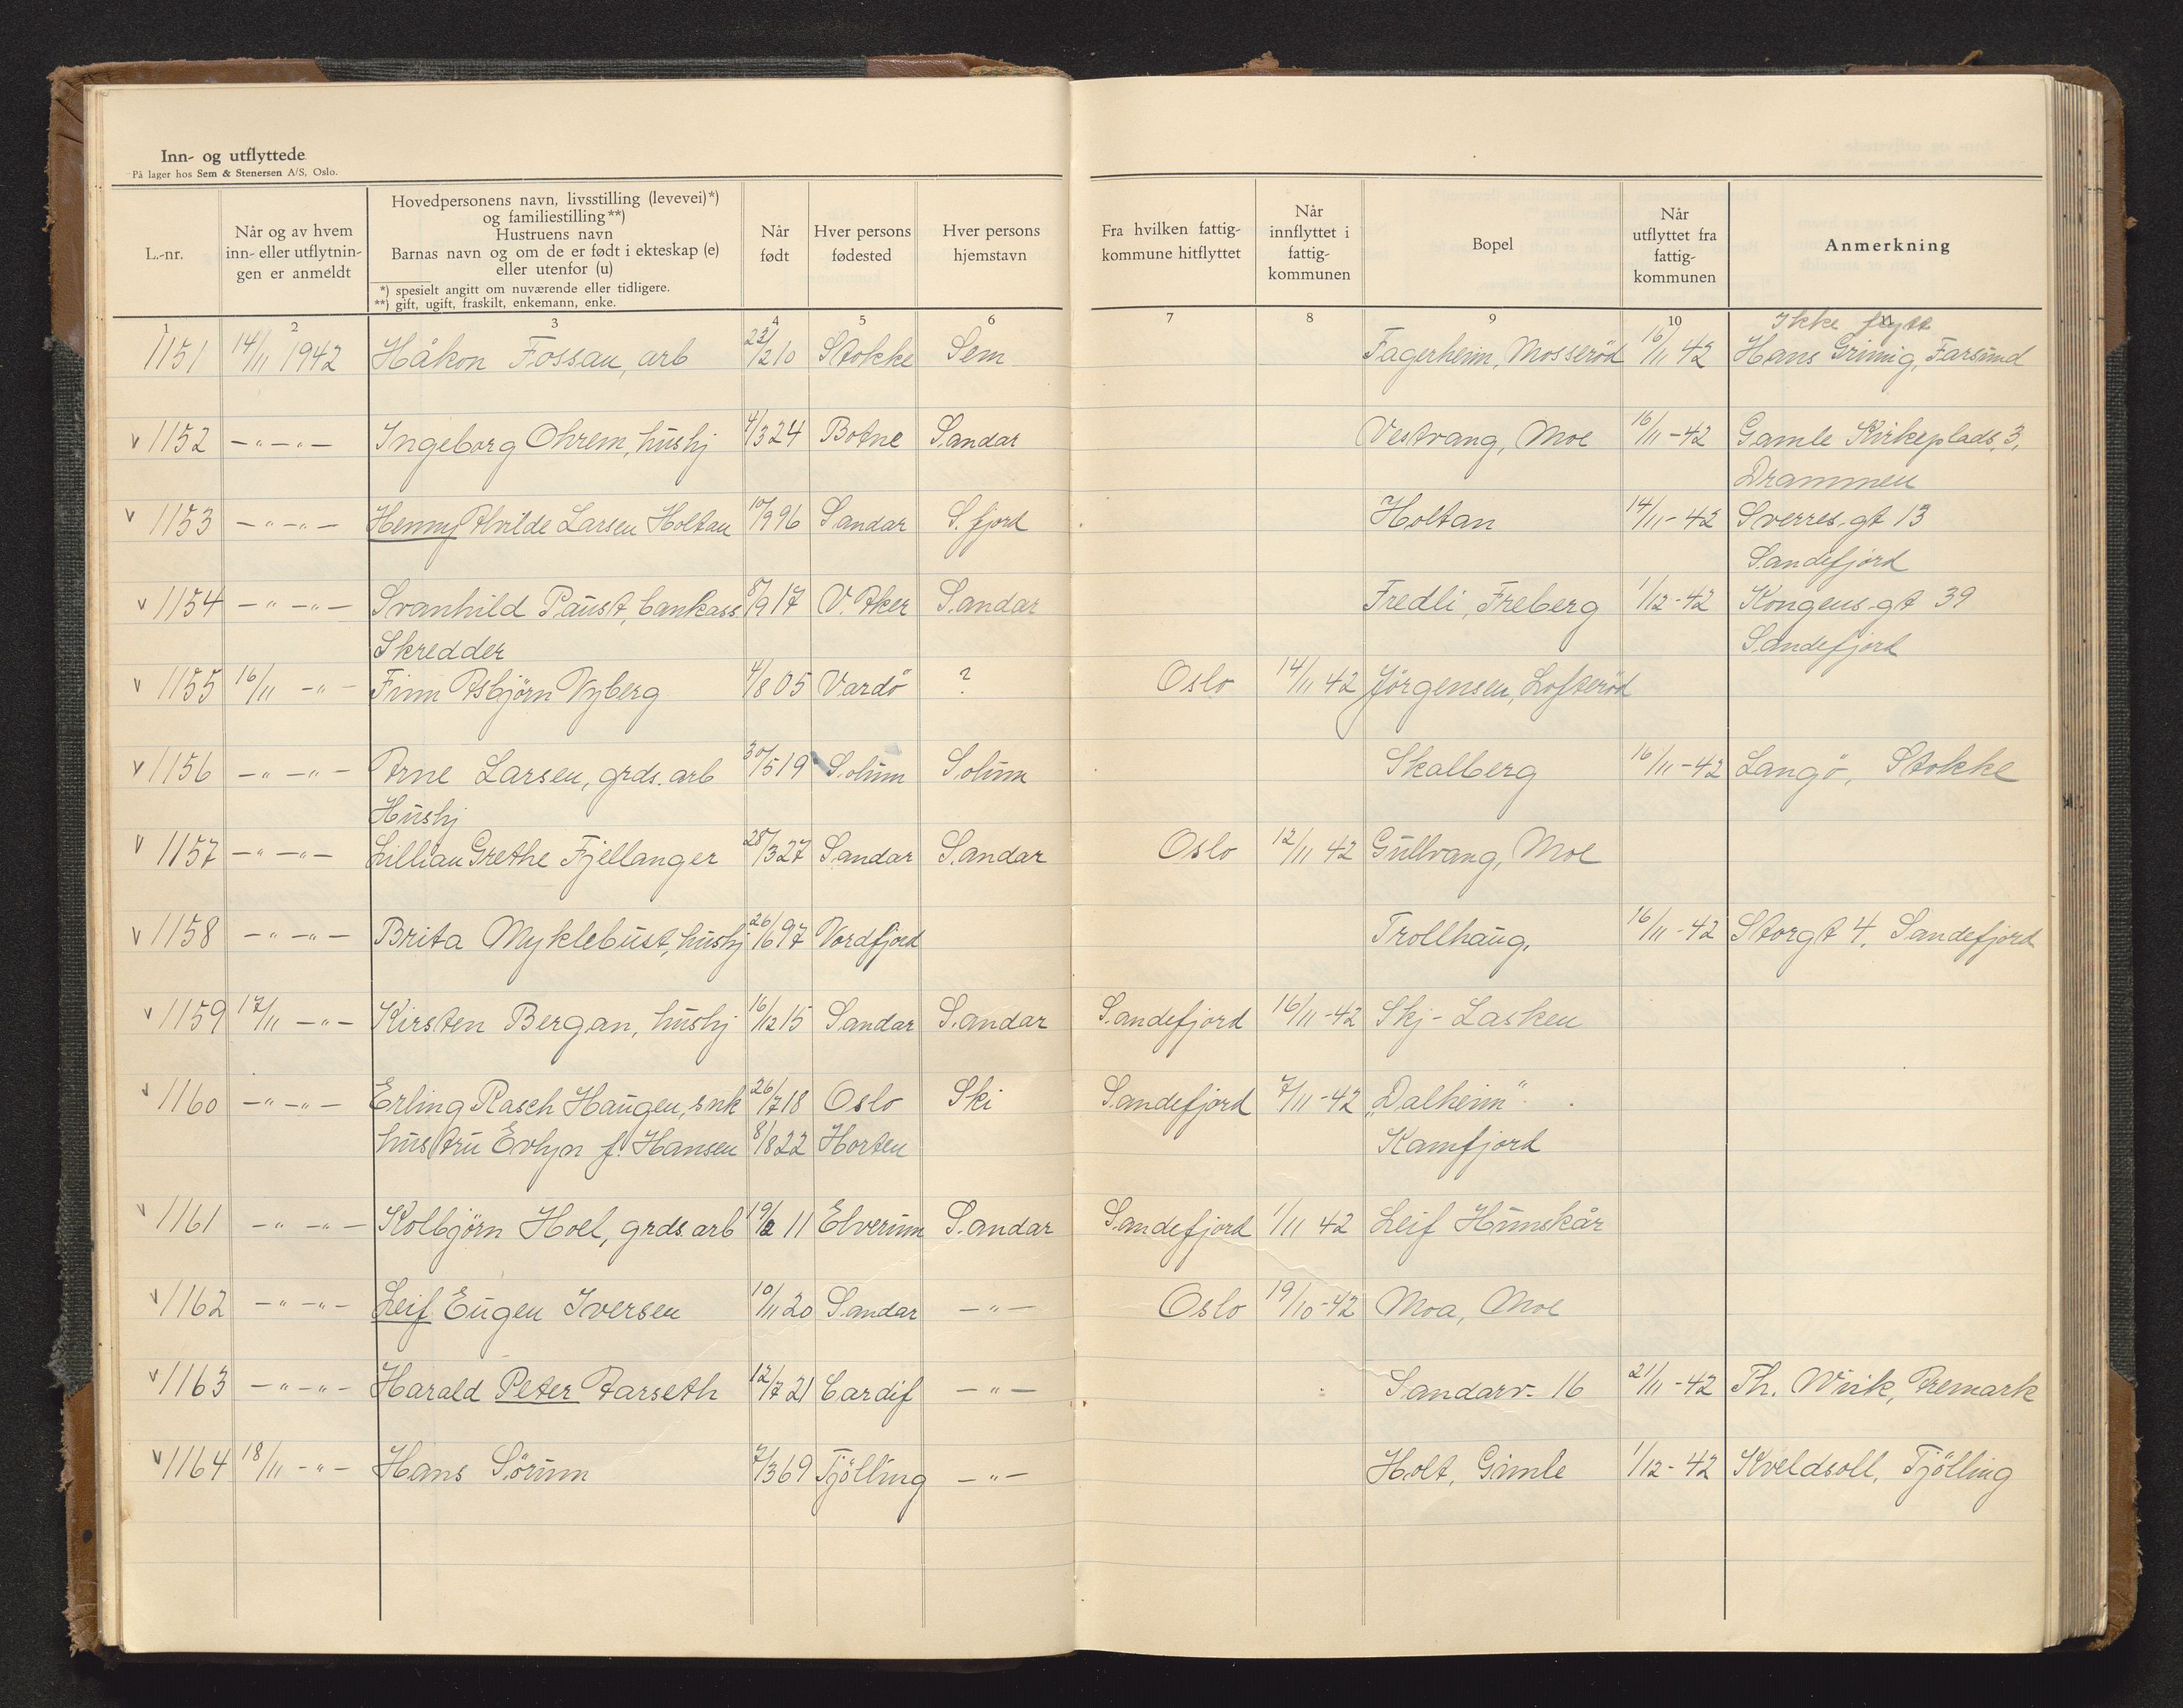 Inn- og utflyttede
På lager hos Sem & Stenersen A/S, Oslo.
L.-nr.
Når og av hvem
inn- eller utflytnin-
gen er anmeldt
Hovedpersonens navn, livsstilling (levevei)*)
og familiestilling**)
Hustruens navn
Barnas navn og om de er født i ekteskap (e)
eller utenfor (u)
*) spesielt angitt om nuværende eller tidligere.
**) gift, ugift, fraskilt, enkemann, enke.
Når
født
Hver persons
fødested
Hver persons
hjemstavn
Fra hvilken fattig-
kommune hitflyttet
Når
innflyttet i
fattig-
kommunen
Bopel
Når
utflyttet fra
fattig-
kommunen
Anmerkning
1 2 3 4 5 6 7 8 9 10 11
Ikke flytt
1151 14/11 1942 Håkon Fossau, arb 22/2 10 Stokke Sem Fagerheim, Mosserød 16/11 42 Hans Grimig, Farsund
v 1152 -"-"- Ingeborg Ohrem, hushj 4/3 24 Botne Sandar Vestvang, Moe 16/11-42 Gamle Kirkeplads 3,
Drammen
v 1153 -"-"- Henny Alvilde Larsen Holtan 10/9 96 Sandar S.fjord Holtan 14/11-42 Sverres-gt 13
Sandefjord
v 1154 -"-"- Svanhild Paust, bankass. 8/9 17 V. Aker Sandar Fredli, Freberg 1/12-42 Kongens-gt 39
Skredder Sandefjord
v 1155 16/11 -"- Finn Asbjørn Nyberg 4/8 05 Vardö ? Oslo 14/11 42 Jörgensen, Lofteröd
v 1156 -"-"- Arne Larsen, grds. arb 30/5 19 Solum Solum Skalberg 16/11-42 Langö, Stokke
Hushj
v 1157 -"-"- Lillian Grethe Fjellanger 28/3 27 Sandar Sandar Oslo 12/11 42 Gullvang, Moe
v 1158 -"-"- Brita Myklebust, hushj 26/6 97 Nordfjord Trollhaug, 16/11-42 Storgt 4, Sandefjord
v 1159 17/11 -"- Kirsten Bergan, hushj 16/12 15 Sandar Sandar Sandefjord 16/11-42 Skj-Lasken
v 1160 -"-"- Erling Rasch Haugen, snk 26/7 18 Oslo Ski Sandefjord 7/11-42 „Dalheim"
hustru Evlyn f. Hansen 8/8 22 Horten Kamfjord
v 1161 -"-"- Kolbjørn Hoel, grds. arb 19/2 11 Elverum Sandar Sandefjord 1/11 42 Leif Hunskår
v 1162 -"-"- Leif Eugen Iversen 10/11 20 Sandar -"- Oslo 19/10-42 Moa, Moe
v 1163 -"-"- Harald Peter Aarseth 12/7 21 Cardif -"- Sandarv. 16 21/11-42 Th. Wiik, Aremark
v 1164 18/11 -"- Hans Sørum 7/3 69 Tjölling -"- Holt, Gimle 1/12-42 Kveldsoll, Tjölling